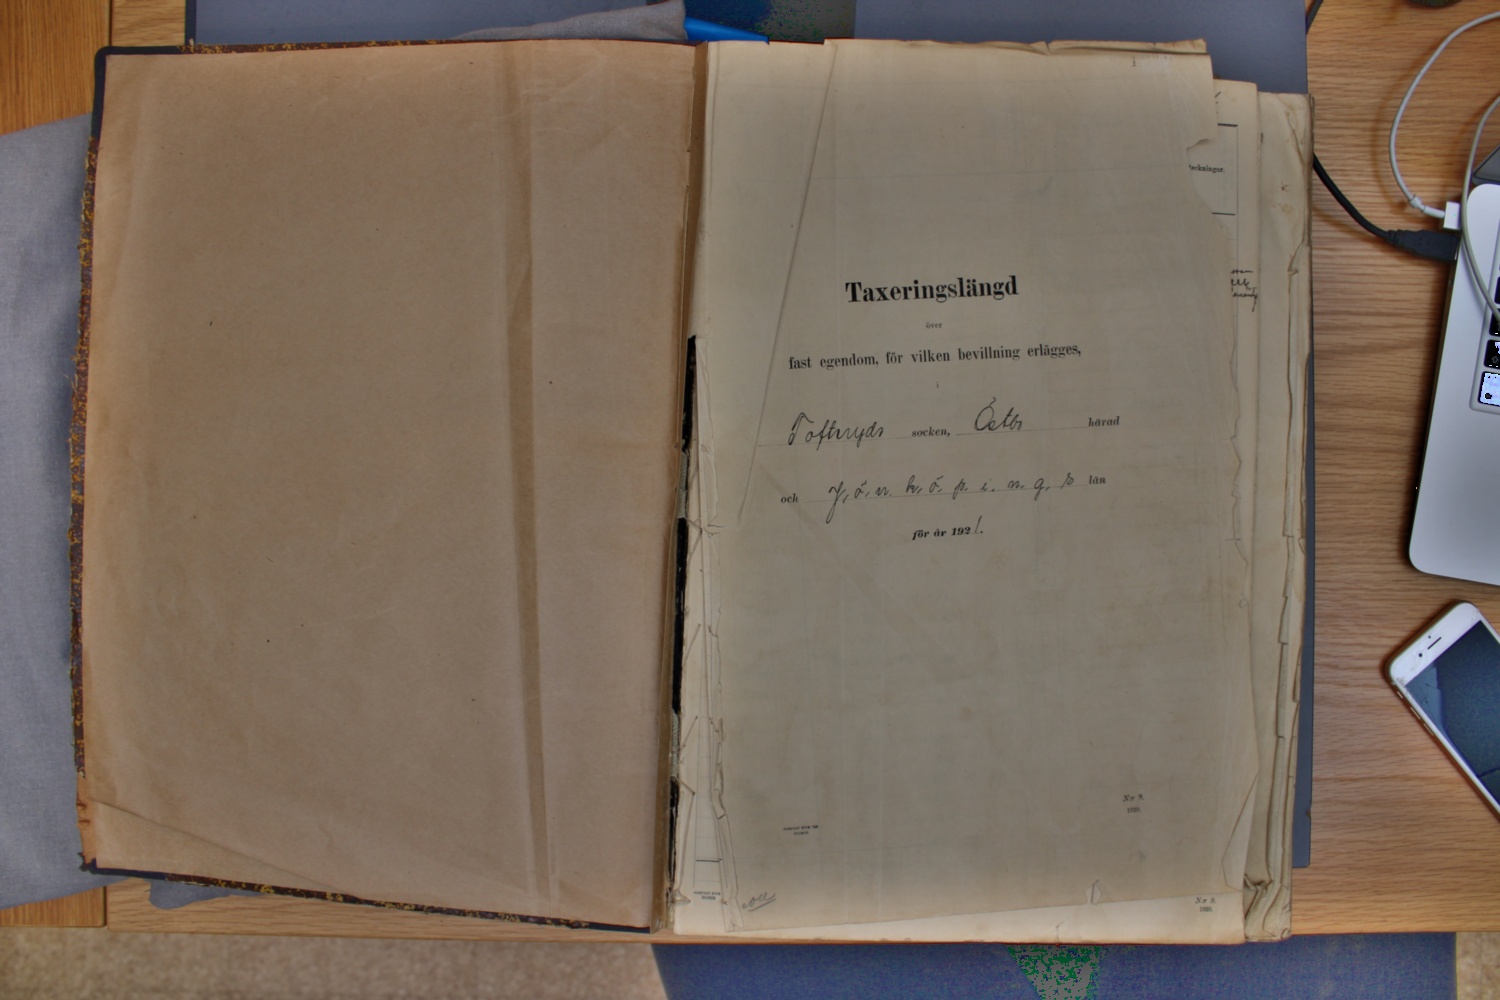 Taxeringslängd
över
fast egendom, för vilken bevillning erlägges,
i
Tofteryds socken, Östbo härad
och Jönköpings län
för år 1921.
N:r 9.
1920.
N:r 9.
1920.